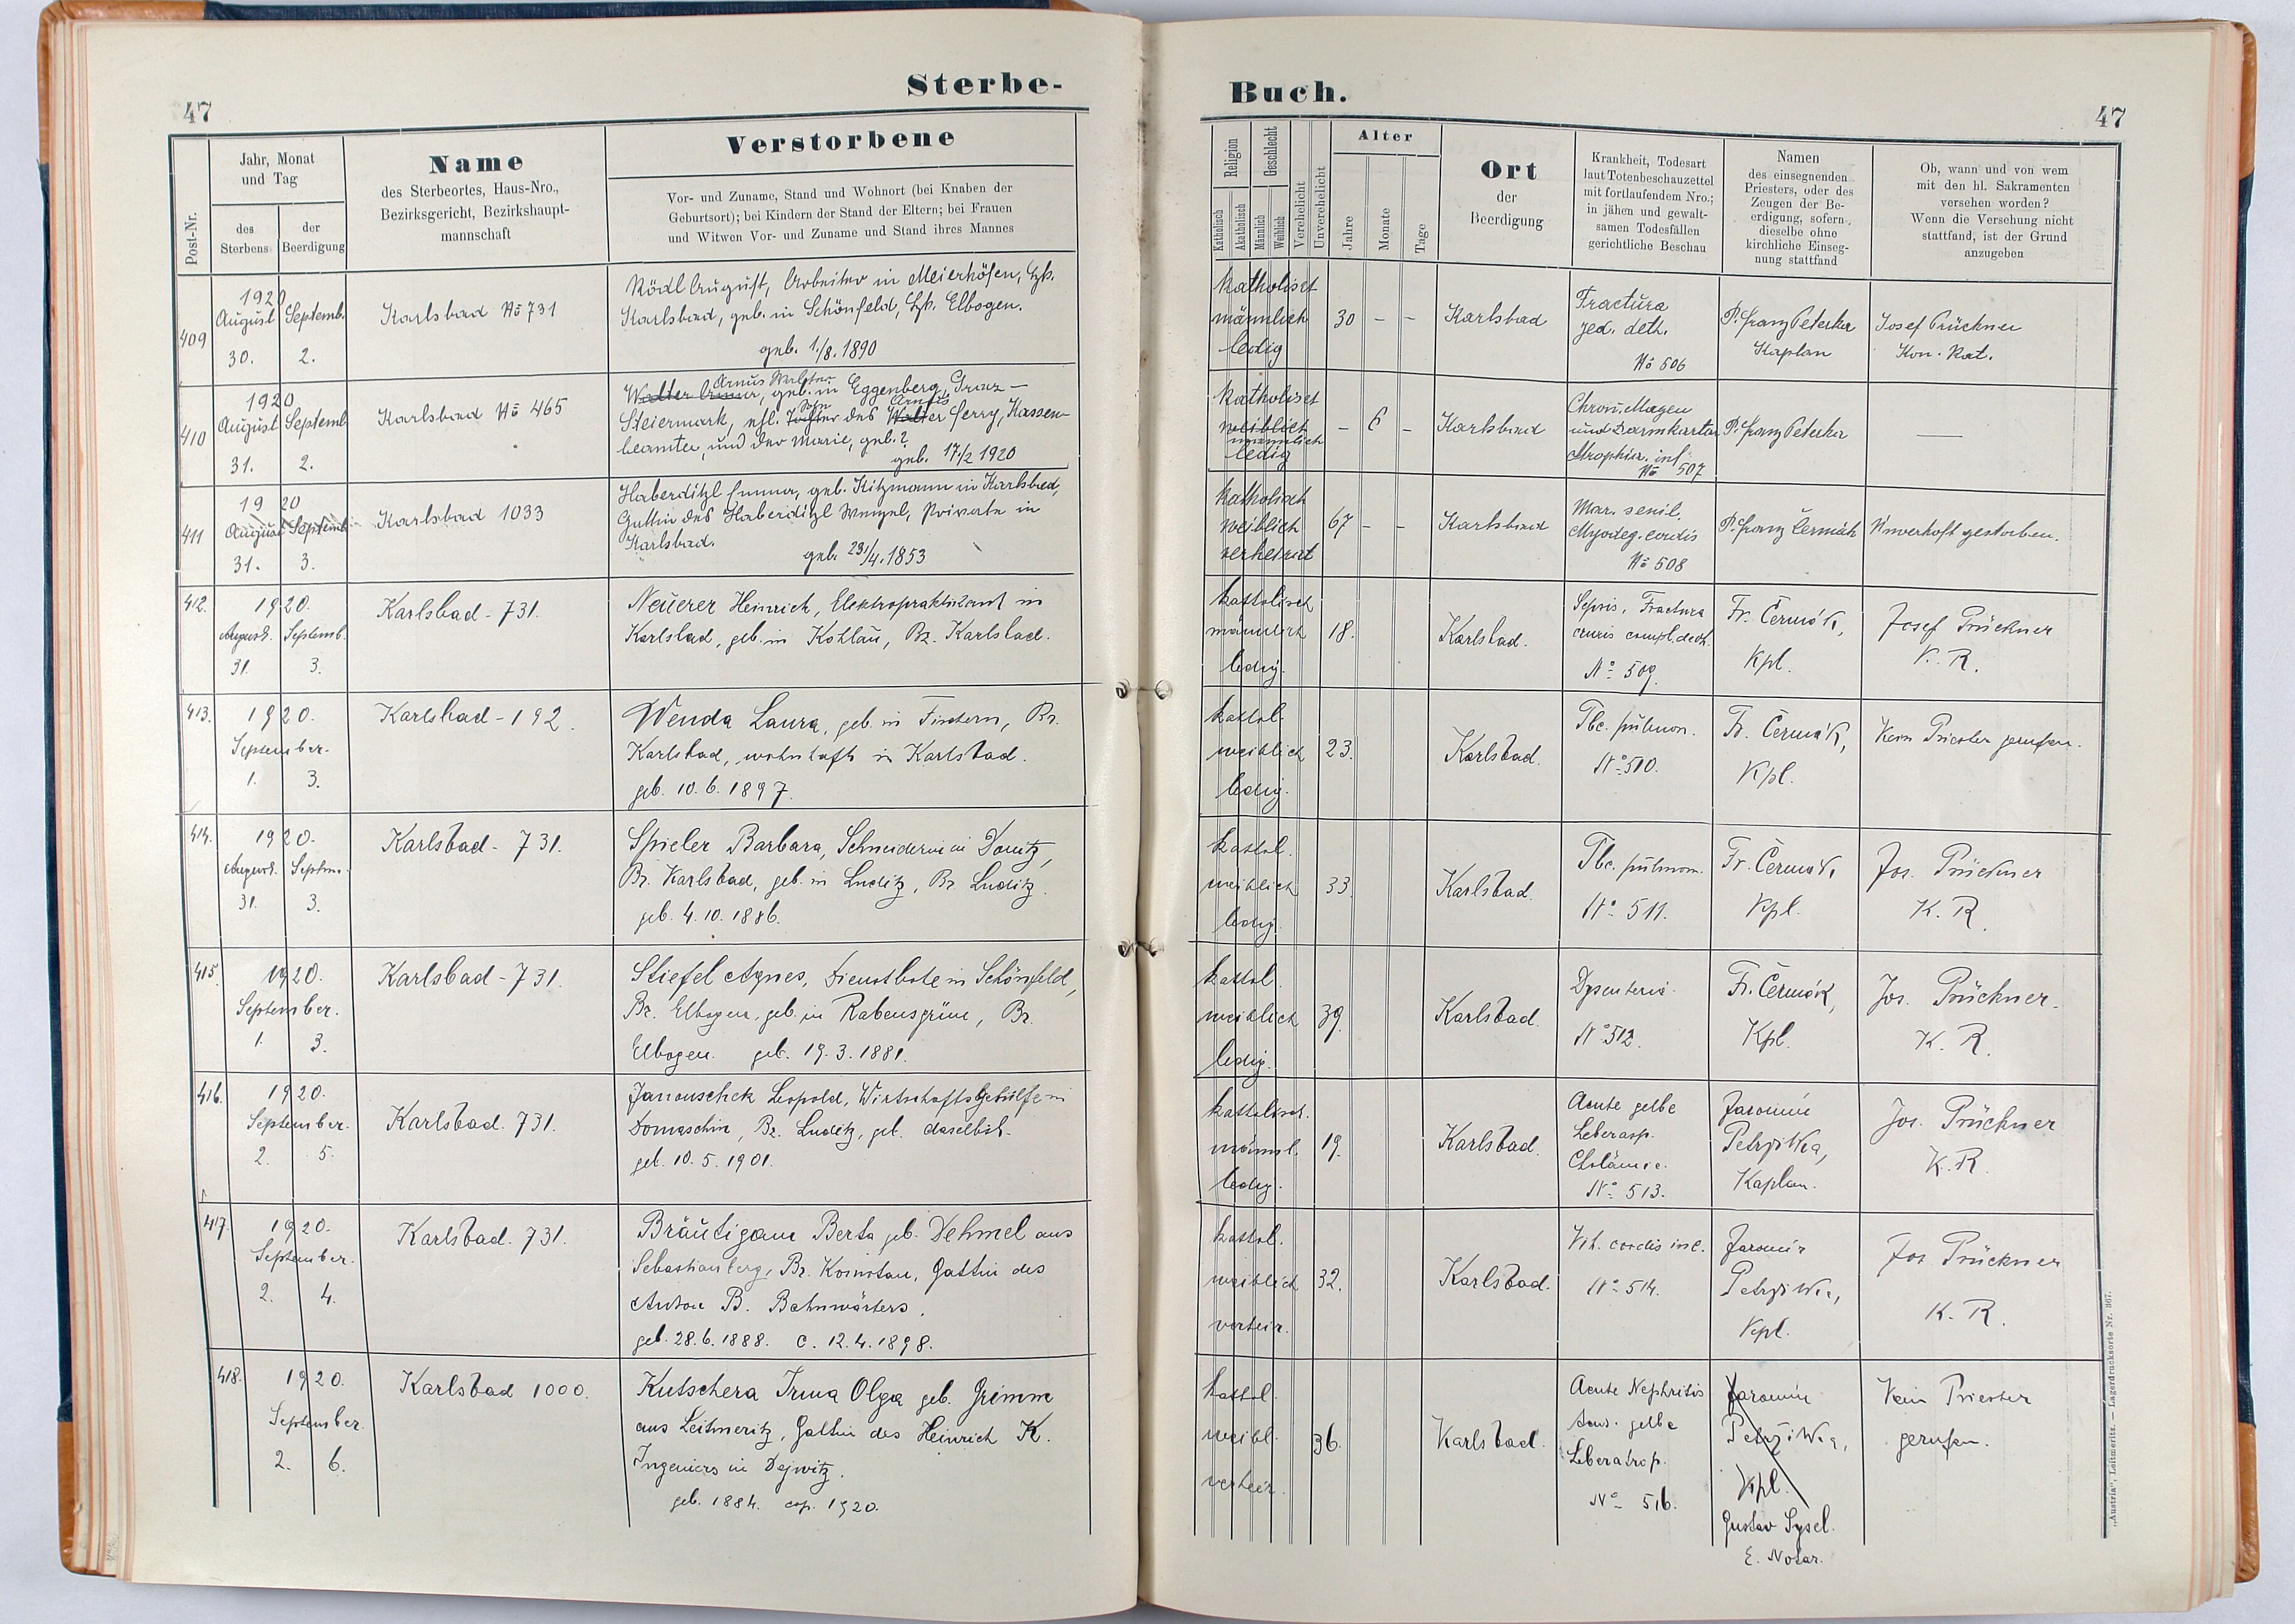 Sterbe-
47
Post-Nr.
Jahr, Monat
und Tag
des
Sterbens
der
Beerdigung
Name
des Sterbeortes, Haus-Nro.,
Bezirksgericht, Bezirkshaupt-
mannschaft
Verstorbene
Vor- und Zuname, Stand und Wohnort (bei Knaben der
Geburtsort); bei Kindern der Stand der Eltern; bei Frauen
und Witwen Vor- und Zuname und Stand ihres Mannes
409
1920
August Septemb.
30. 2.
Karlsbad No 731
Rödl August, Arbeiter in Meierhöfen, Bzk.
Karlsbad, geb. in Schönfeld, Bzk. Elbogen.
geb. 1./8. 1890
410
1920
August Septemb
31. 2.
Karlsbad No 465
Walter
geb. in Eggenberg, Graz –
Steiermark, ehl. Tochter des Walter Ferry, Kassen-
Sohn
beamter, und der Marie, geb. ?
geb. 17./2 1920
411
1920
August Septemb
31. 3.
Karlsbad 1033
Haberditzl Emma, geb. Kitzmann in Karlsbad,
Gattin des Haberditzl Wenzel, Private in
Karlsbad.
geb. 23/4. 1853
412.
1920.
August. Septemb.
31. 3.
Karlsbad - 731.
Neuerer Heinrich, Elektropraktikant in
Karlsbad, geb. in Kohlau, Bz. Karlsbad.
413.
1920.
September.
1. 3.
Karlsbad - 192.
Wenda Laura, geb. in Fischern, Bz.
Karlsbad, wohnhaft in Karlsbad.
geb. 10. 6. 1897.
414.
1920.
August. Septem.
31. 3.
Karlsbad - 731.
Spieler Barbara, Schneiderin in Donitz,
Bz. Karlsbad, geb. in Luditz, Bz. Luditz.
geb. 4. 10. 1886.
415.
1920.
September.
1. 3.
Karlsbad - 731.
Stiefel Agnes, Dienstbote in Schönfeld,
Bz. Elbogen, geb. in Rabensgrün, Bz.
Elbogen. geb. 19. 3. 1881.
416.
1920.
September.
2. 5.
Karlsbad. 731.
Janouschek Leopold, Wirtschaftsgehilfe in
Domaschin, Bz. Luditz, geb. daselbst.
geb. 10. 5. 1901.
417.
1920.
September.
2. 4.
Karlsbad. 731.
Bräutigam Berta geb. Dehmel aus
Sebastiansberg, Bz. Komotau, Gattin des
Anton B. Bahnwärters.
geb. 28. 6. 1888. C. 12. 4. 1898.
418.
1920.
September.
2. 6.
Karlsbad 1000.
Kutschera Irma Olga geb. Grimm
aus Leitmeritz, Gattin des Heinrich K.
Ingeniers in Dejwitz.
geb. 1884. cop. 1920.
Buch.
47
Religion
Geschlecht
Katholisch
Akatholisch
Männlich
Weiblich
Verehelicht
Unverehelicht
Alter
Jahre
Monate
Tage
Ort
der
Beerdigung
Krankheit, Todesart
laut Totenbeschauzettel
mit fortlaufendem Nro.;
in jähen und gewalt-
samen Todesfällen
gerichtliche Beschau
Namen
des einsegnenden
Priesters, oder des
Zeugen der Be-
erdigung, sofern
dieselbe ohne
kirchliche Einseg-
nung stattfand
Ob, wann und von wem
mit den hl. Sakramenten
versehen worden?
Wenn die Versehung nicht
stattfand, ist der Grund
anzugeben
katholisch
männlich
ledig
30 - -
Karlsbad
Fractura
No 506
P. Franz Peterka
Kaplan
Josef Prückner
Kon. Rat.
katholisch
weiblich
männlich
ledig
- 6 -
Karlsbad
Chron. Magen
und Darmkatarr
Atrophia. inf.
No 507
P. Franz Peterka
—
katholisch
weiblich
verheirat
67 - -
Karlsbad
Mar. senil.
Myodeg. cordis
No 508
P. Franz Čermák
Unverhofft gestorben.
katholisch
männlich
ledig.
18.
Karlsbad.
Sepsis, Fractura
cruris compl. dext.
No 509.
Fr. Čermák,
Kpl.
Josef Prückner
K. R.
kathol.
weiblich
ledig.
23.
Karlsbad.
Tbc. pulmon.
No 510.
Fr. Čermák,
Kpl.
Kein Priester gerufen.
kathol.
weiblich
ledig.
33.
Karlsbad.
Tbc. pulmon.
No 511.
Fr. Čermák,
Kpl.
Jos. Prückner
K. R.
kathol.
weiblich
ledig.
39.
Karlsbad.
Dysenteria.
No 512.
Fr. Čermák,
Kpl.
Jos. Prückner.
K. R.
katholisch.
männl.
ledig.
19.
Karlsbad.
Acute gelbe
Leberatp.
Cholämie.
No 513.
Jaromír
Petrziwka,
Kaplan.
Jos. Prückner
K. R.
kathol.
weiblich
verheir.
32.
Karlsbad.
Vit. cordis inc.
No 514.
Jaromír
Kpl.
Jos Prückner
K. R.
kathol.
weibl.
verheir.
36.
Karlsbad.
Acute Nephritis
gelbe
Leberatrop.
No 516.
Jaromír
Kpl.
Gustav Sysel.
E. Notar.
Kein Priester
gerufen.
„Austria", Leitmeritz. — Lagerdrucksorte Nr. 367.